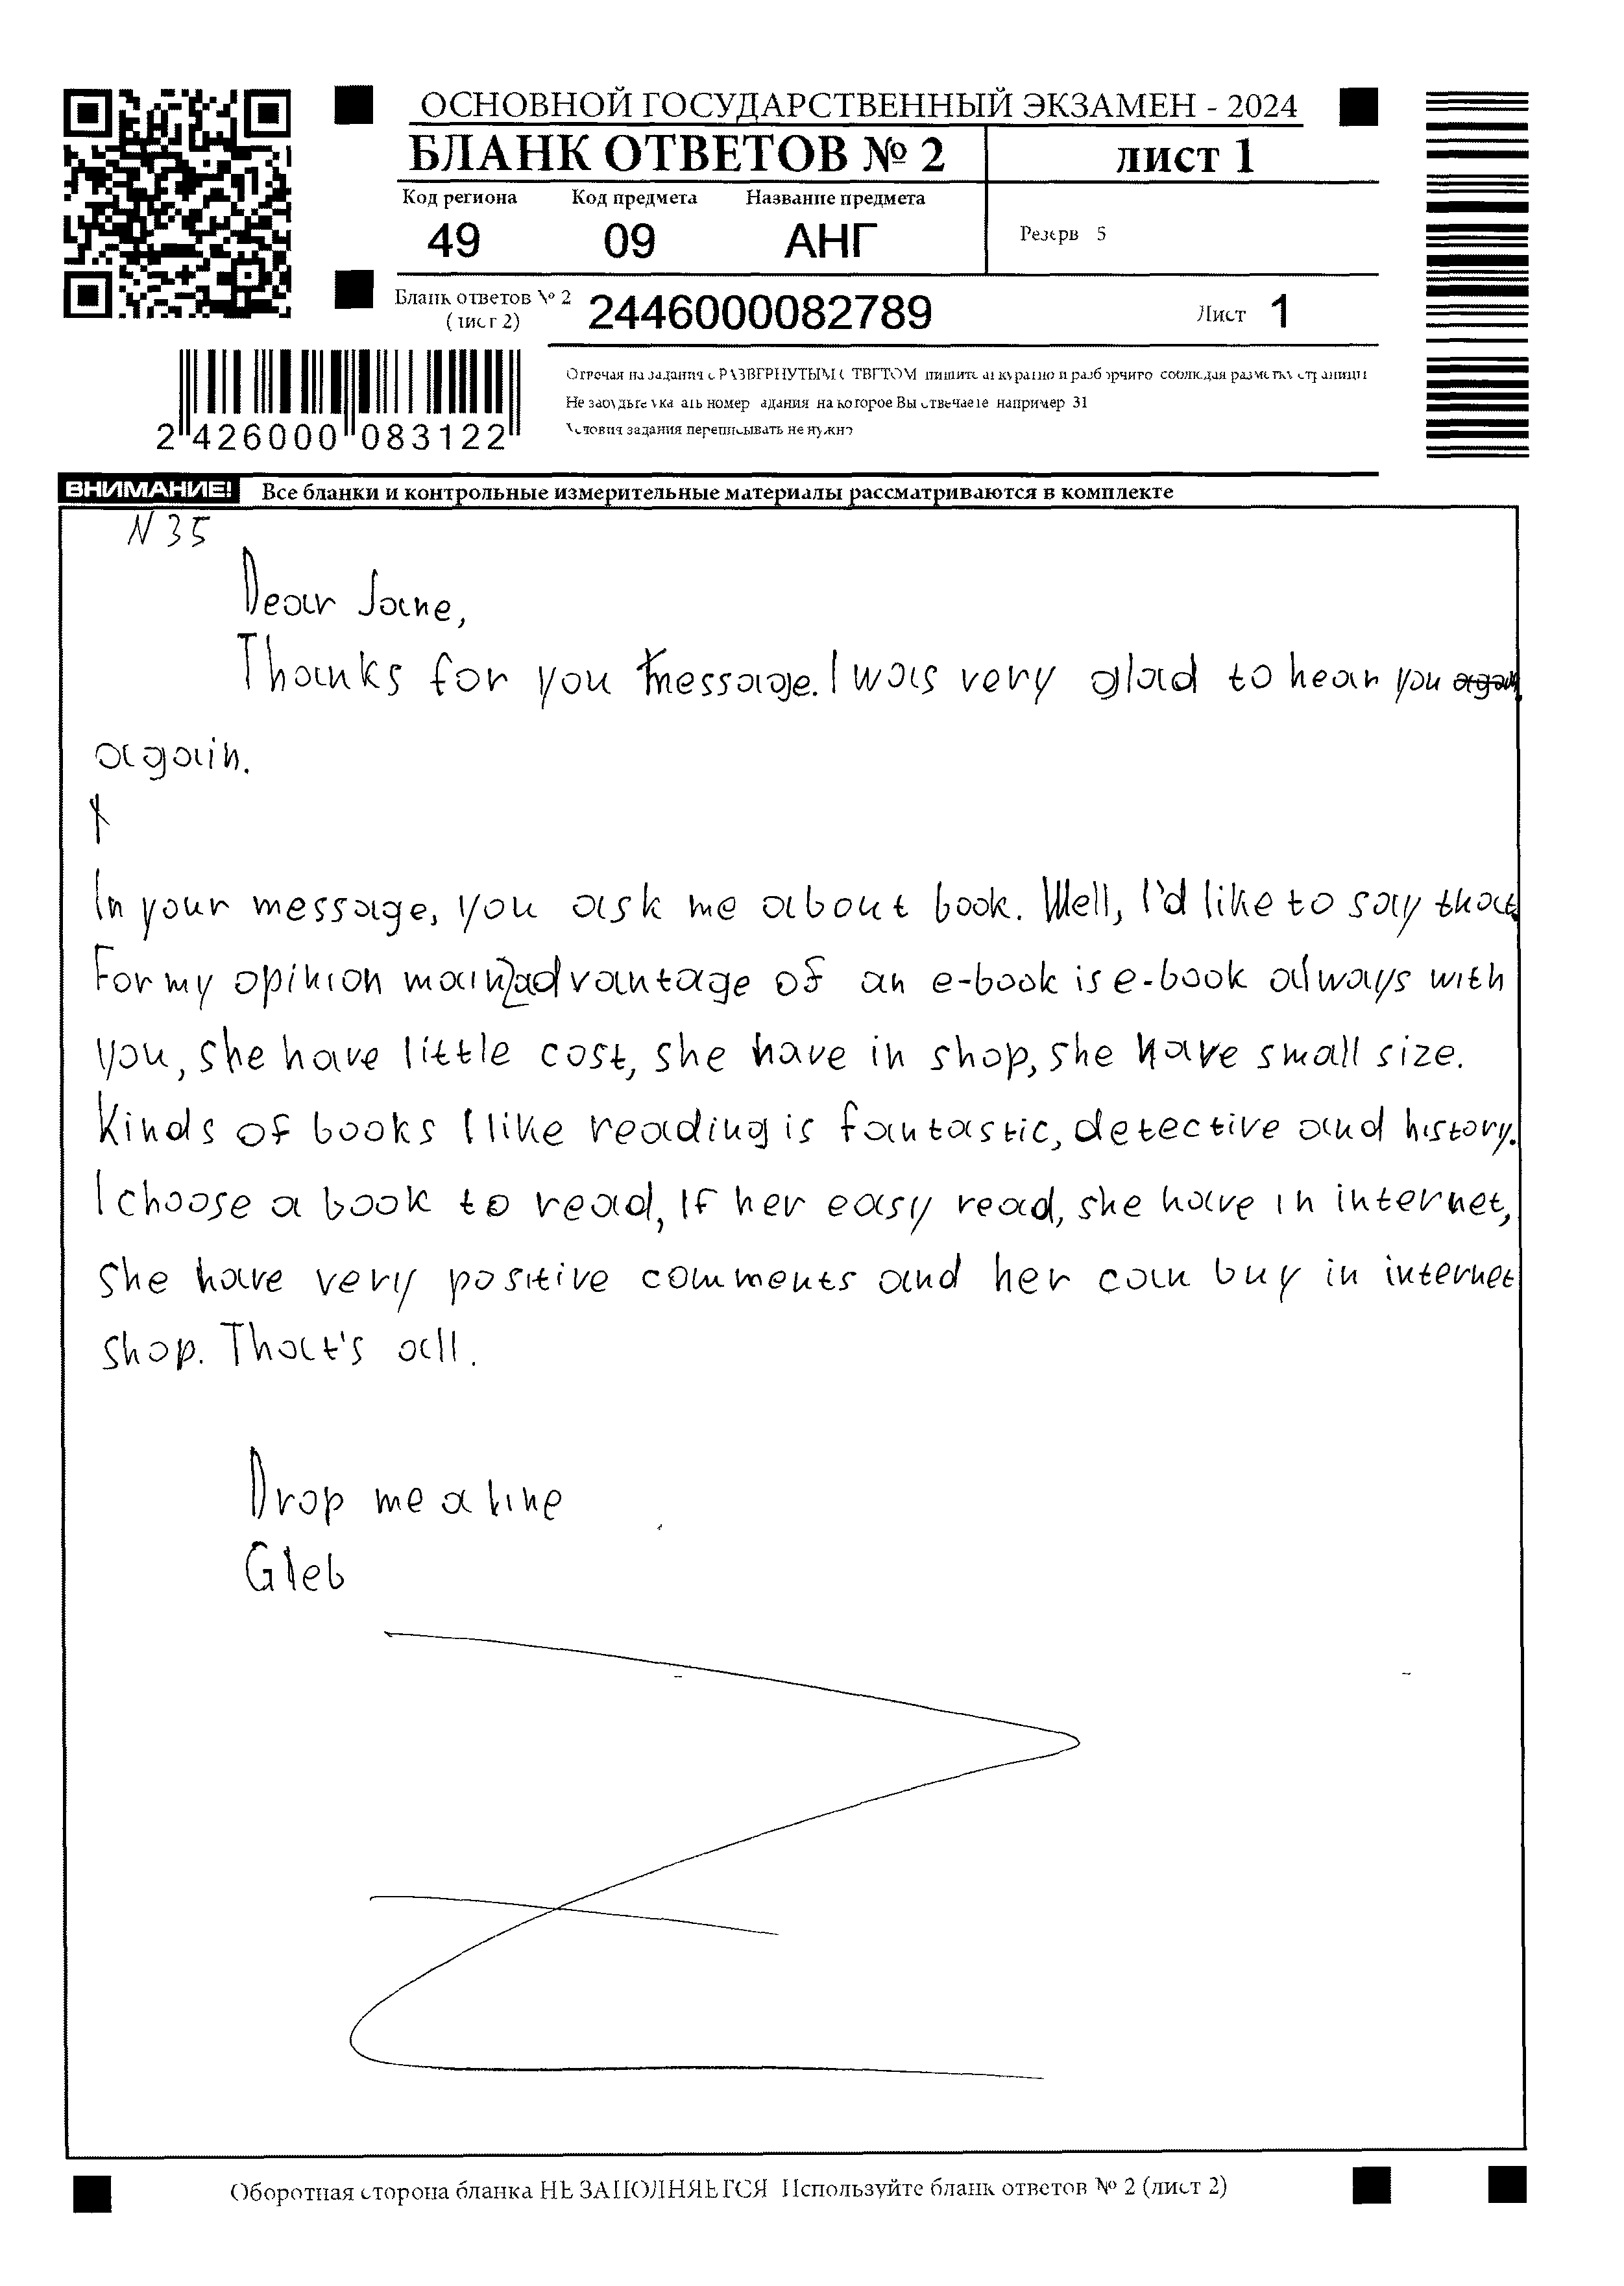 ОСНОВНОЙ ГОСУДАРСТВЕННЫЙ ЭКЗАМЕН - 2024
БЛАНК ОТВЕТОВ № 2 лист 1
Код региона Код предмета Название предмета
49 09 АНГ Резерв 5
Бланк ответов № 2
(лист 2) 2446000082789 Лист 1
Отвечая на задания с РАЗВЕРНУТЫМ ОТВЕТОМ пишите аккуратно и разборчиво соблюдая разметку страницы
Не забудьте указать номер задания на которое Вы отвечаете например 31
Условия задания переписывать не нужно
2 426000 083122
ВНИМАНИЕ! Все бланки и контрольные измерительные материалы рассматриваются в комплекте
N 35
Dear Jane,
Thanks for you message. I was very glad to hear you
again.
In your message, you ask me about book. Well, I'd like to say that.
For my opinion main advantage of an e-book is e-book always with
you, she have little cost, she have in shop, she have small size.
Kinds of books I like reading is fantastic, detective and history.
I choose a book to read, If her easy read, she have in internet,
she have very positive comments and her can buy in internet
shop. That's all.
Drop me a line
Gleb
Оборотная сторона бланка НЕ ЗАПОЛНЯЕТСЯ Используйте бланк ответов № 2 (лист 2)